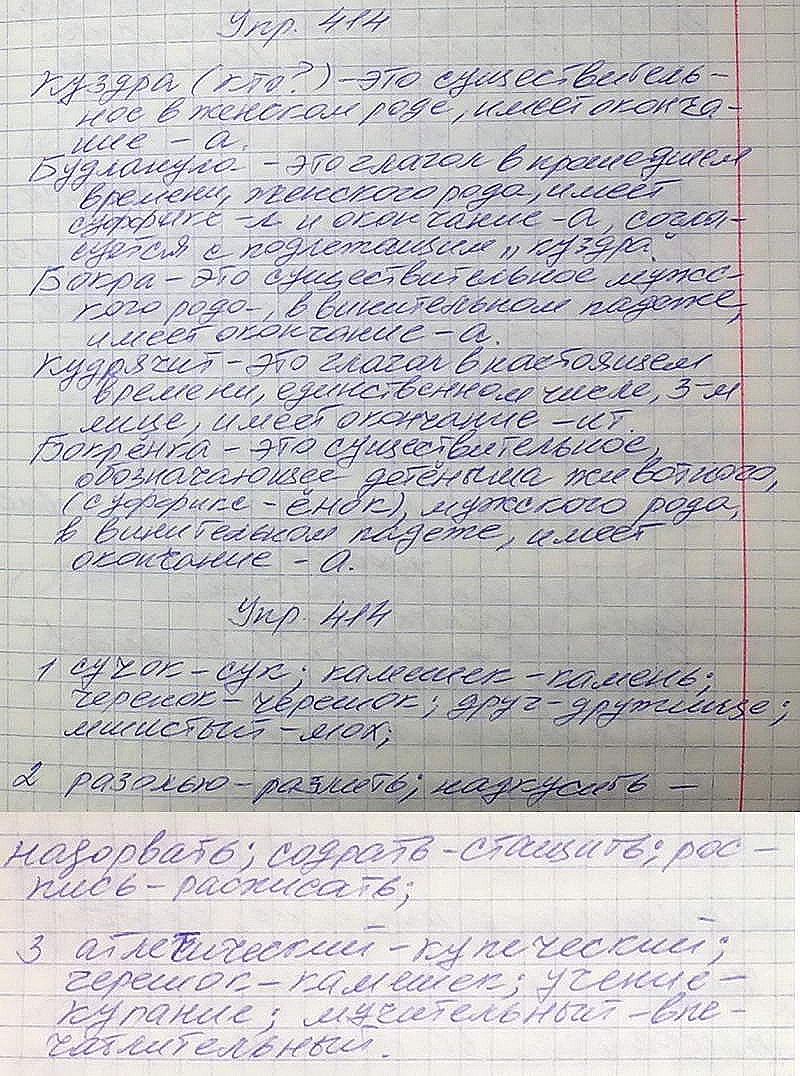 Упр. 414
Куздра (кто?) – это существитель-
ное в женском роде, имеет оконча-
ние – а.
Будланула – это глагол в прошедшем
времени, женского рода, имеет
суффикс -л и окончание -а, согла-
суется с подлежащим „куздра.
Бокра – это существительное мужс-
кого рода, в винительном падеже,
имеет окончание – а.
Кудрячит – это глагол в настоящем
времени, единственном числе, 3-м
лице, имеет окончание – ит.
Бокрёнка – это существительное,
обозначающее детёныша животного,
(суффикс – ёнок), мужского рода,
в винительном падеже, имеет
окончание – а.
Упр. 414
1 сучок – сук; камешек – камень;
черепок – черешок; друг – дружище;
мшистый – мох;
2 разолью – разлить; надкусить –
надорвать; содрать – стащить; рос-
пись – расписать;
3 атлетический – купеческий;
черешок – камешек; учение –
купание; мучительный – впе-
чатлительный.